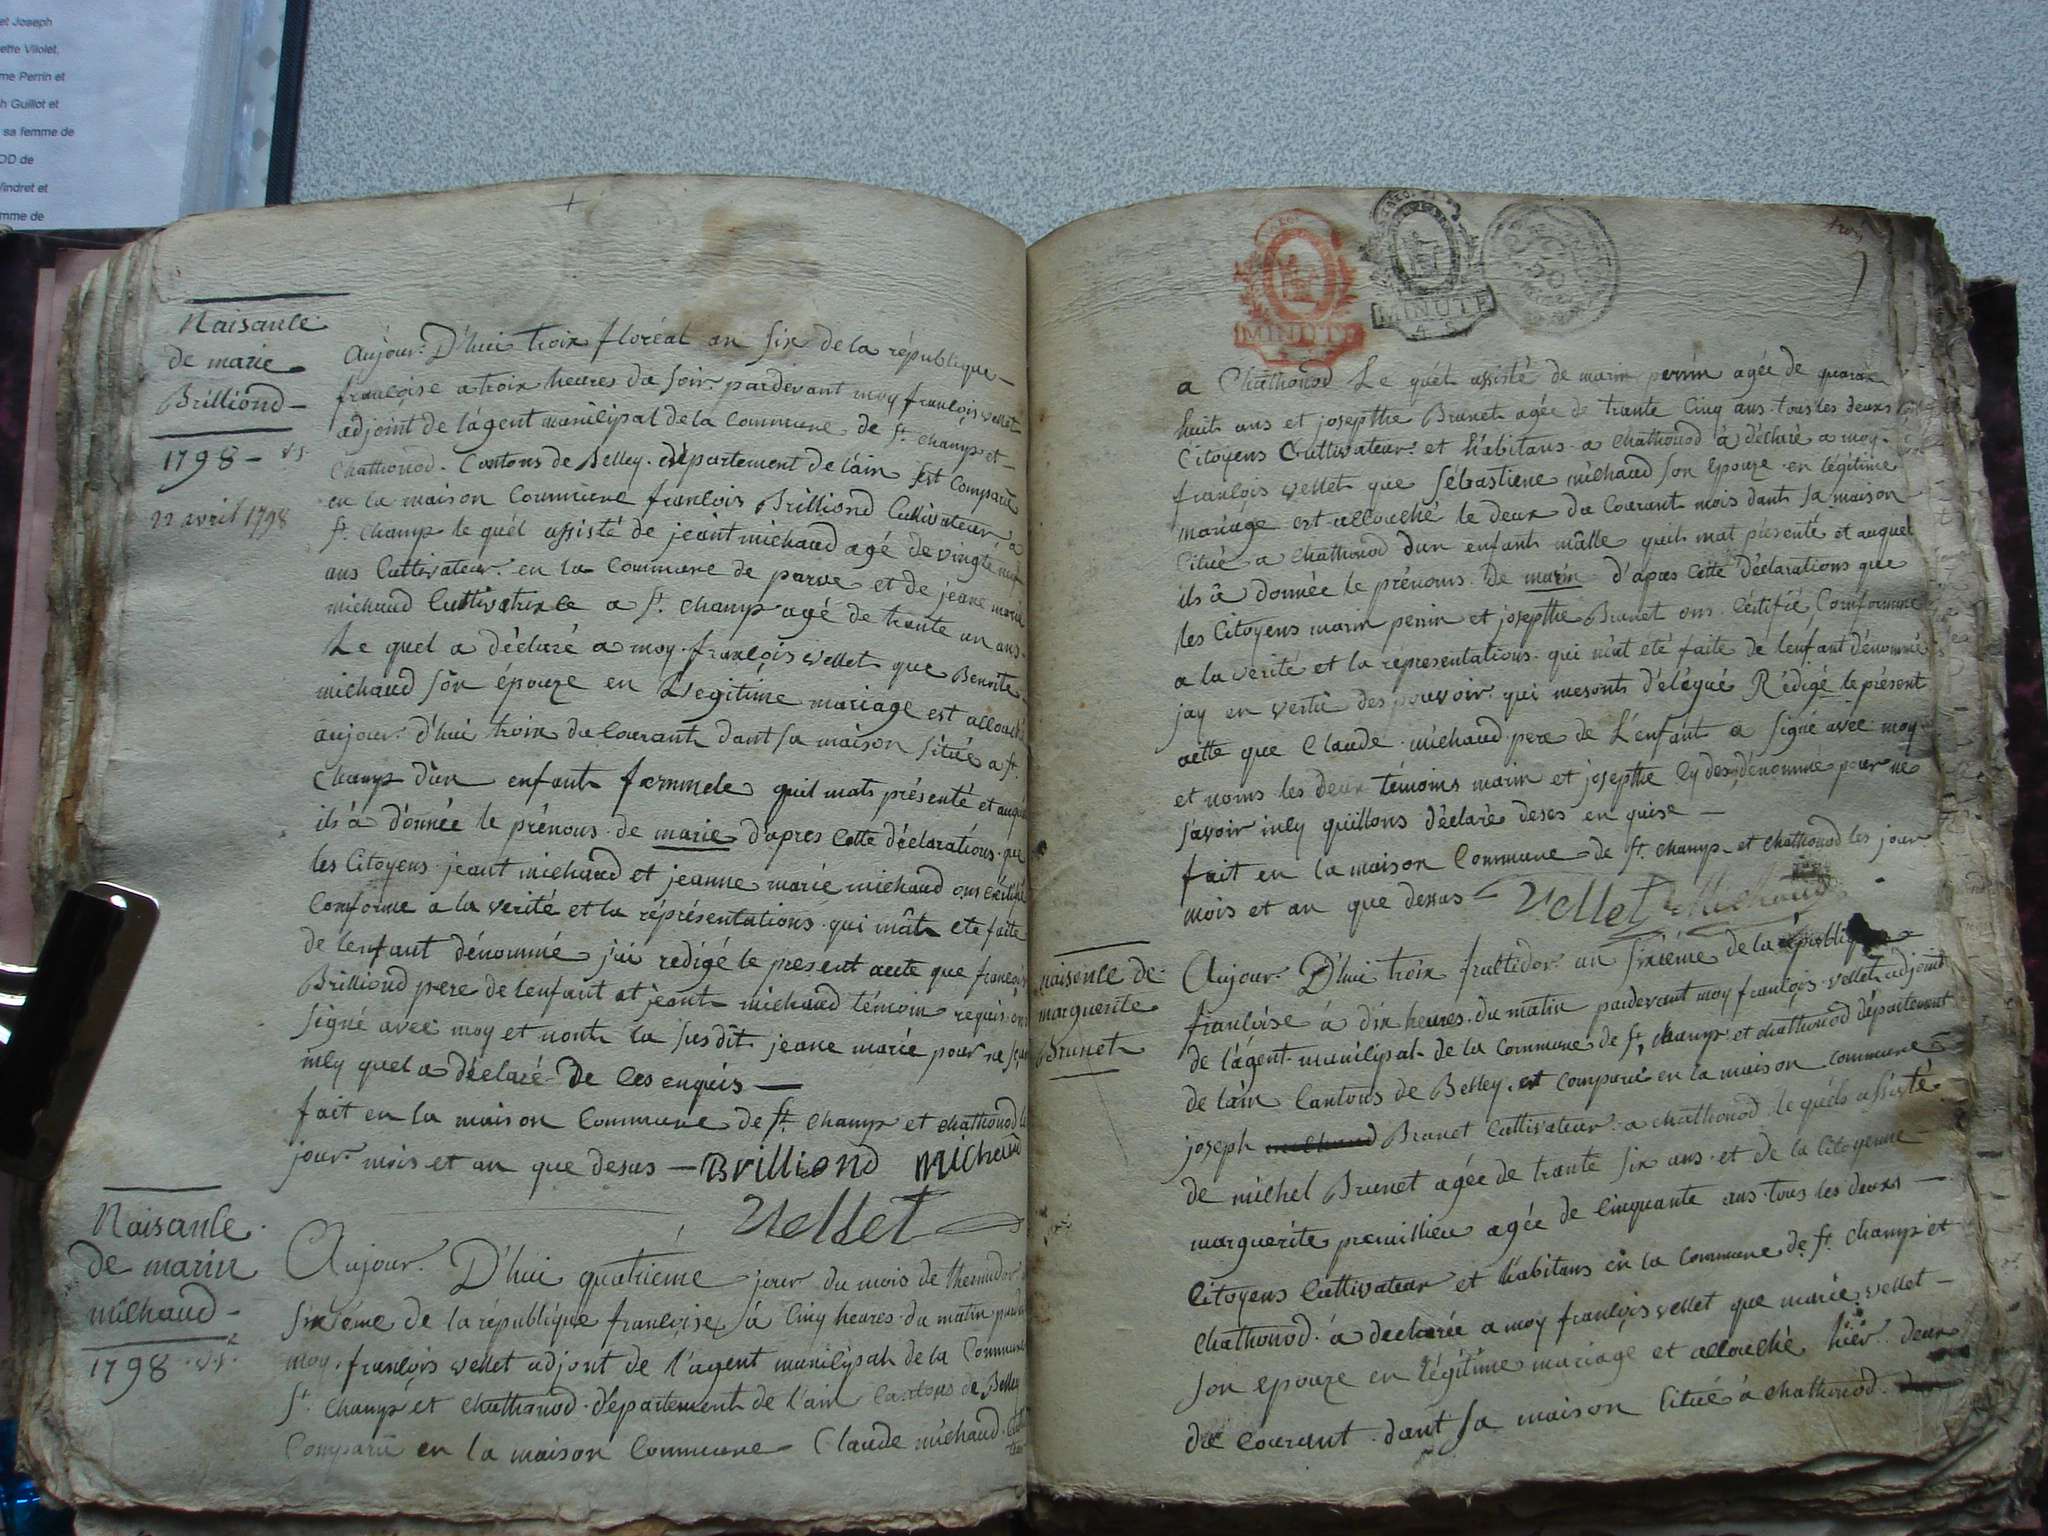 et Joseph
ette Vilolet,
me Perrin et
h Guillot et
sa femme de
OD de
Vindret et
mme de
Naisance
de marie
Brilliond
1798 - v.s.
22 avril 1798
Aujour. D'hui troix floréal an six de la république
françoise a troix heures du soir. pardevant moy françois vellet
adjoint de l'agent municipal de la commune de St. champ et
Chathonod. Cantons de Belley. département de lain Est Comparu
en la maison Commune françois Brilliond Cultivateur a
St. champ le quél assisté de jeant michaud agé de vingté neuf
ans Cultivateur. en la Commune de parve et de jeane marie
michaud Cultivatrice a St. champ agé de trante un ans
Le quel a déclaré a moy. françois vellet que Benoite
michaud són épouze en Legitime mariage est allouché
aujour. d'hui troix du Courant dant sa maison sitúé a St.
Champ d'un enfant femmele quil mats présenté et auquel
ils à dónnée le prénous de marie d'apres Cette déclarations que
les Citoyens jeant michaud et jeanne marie michaud ons certifié
Comforme a la verité et la réprésentations qui mât ete faite
de lenfant dénommé j'ai redigé le present acte que françois
Brilliond pere de lenfant et jeant michaud témoin requis ons
signé avec moy et nont la susdit jeane marie pour ne
incy quel a déclaré De ces enquis
fait en la maison Commune de St. champ et chathonod le
jour mois et an que desus — Brilliond michaud
Vellet
Naisance
de marin
michaud
1798 v.s.
Aujour. D'hui quatriéme jour du mois de thermidor
sixiéme de la république françoise à Cinq heures du matin
moy. françois vellet adjont de l'agent municipal de la Commune
St. champ et chathonod département de l'ain Cantons de Belley
Comparu en la maison Commune Claude michaud
MINUTE
MINUTE
4 S
a Chathonod Le quél assisté de marin perrin agée de quarante
huit ans et josepthe Brunet agée de trante Cinq ans tous les deux
Citoyens Cultivateur. et habitans a chathonod à déclaré a moy.
françois vellet que Sébastiene michaud son Epouze en légitime
mariage est allouché le deux du Courant mois dant sa maison
Citué a chathonod dun enfant mâlle quil mat présenté et auquel
ils à donnée le prénoms De marin d'apres Cette Déclarations que
les Citoyens marin perrin et josepthe Brunet ons Certifié Comforme
a la verité et la réprésentations qui m'at été faite de lenfant dénommé
jay en vertû des pouvoir qui mesont délégué Rédigé le présent
actte que Claude michaud pere de L'enfant a signé avec moy
et noms les deux témoins marin et josepthe dénommé pour ne
savoir incy quillons déclaré deses en quise
fait en la maison Commune de St. champ et chathonod les jour
mois et an que desus Vellet Michaud
naisence de
marguerite
Brunet
Aujour. D'hui troix fructidor an sixiéme de la républiq
françoise à dix heures du matin pardevant moy françois vellet adjoint
de l'agent municipal de la Commune de St. champ et chathonod département
de lain Cantons de Belley est comparu en la maison commune
joseph Brunet Cultivateur a chathonod le quéls assisté
de michel Brunet agée de trante six ans et de la Citoyenne
marguerite premillieu agée de Cinquante ans tous les deux
Citoyens Cultivateur et habitans en la commune de St. champ et
chathonod à declarée a moy françois vellet que marie vellet
son epouze en légitime mariage et allouché hier deux
du courant dant sa maison Citué à chathonod